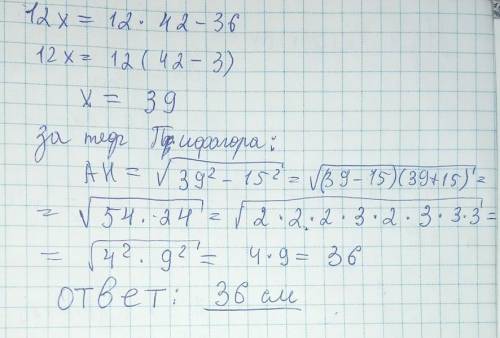 12x = 12 · 42 - 36
12x = 12 ( 42 - 3)
x = 39
за теор Пифагора:
AH = √39² - 15² = √(39-15)(39+15) =
= √54 · 24 = √2·2·2·3·2·3·3·3 =
= √4² · 9² = 4·9 = 36
ответ: 36 см